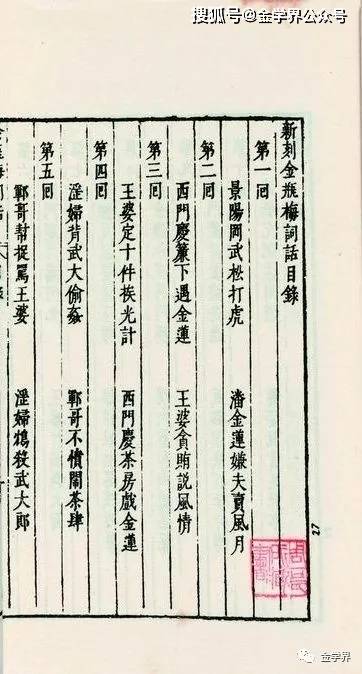 搜狐号@金学界公众号
新刻金瓶梅詞話目錄
第一回
景陽岡武松打虎 潘金蓮嫌夫賣風月
第二回
西門慶簾下遇金蓮 王婆貪賄說風情
第三回
王婆定十件挨光計 西門慶茶房戲金蓮
第四回
淫婦背武大偷姦 鄆哥不憤鬧茶肆
第五回
鄆哥幫捉罵王婆 淫婦鴆殺武大郎
27
金学界